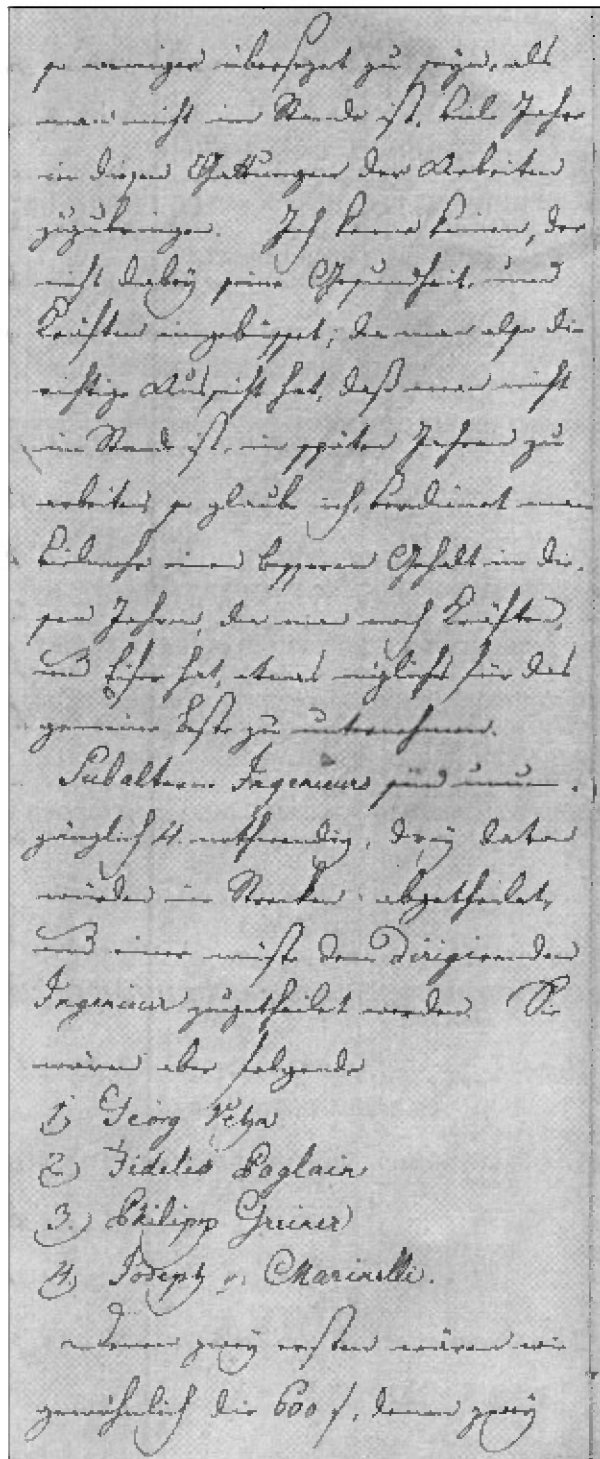 so weniger übersezet zu seyn, als
man nicht im Stande ist, viele Jahre
in diesen Gattungen der Arbeiten
zuzubringen. Ich kenne keinen, der
nicht dabey seine Gesundheit, und
Kräften eingebüsset; da man also die
richtige Aussicht hat, daß man nicht
im Stande ist, in späten Jahren zu
arbeiten, so glaube ich, verdienet man
vielmehr einen besseren Gehalt in die-
sen Jahren, da man noch Kräften,
und Eifer hat, etwas nüzliches für das
gemeine Beste zu unternehmen.
Subalterne Ingenieurs sind unum-
gänglich 4. nothwendig, drey daten
würden in Strecken abgetheilet,
und einer müste dem Dirigirenden
Ingenieur zugetheilet werden. Sie
wären aber folgende
1) Georg
2) Fidelis Poglain
3.) Philipp Greiner
4) Joseph v. Marinelli.
Denen zwey ersten wären wie
gewöhnlich die 600 f, denen zwey